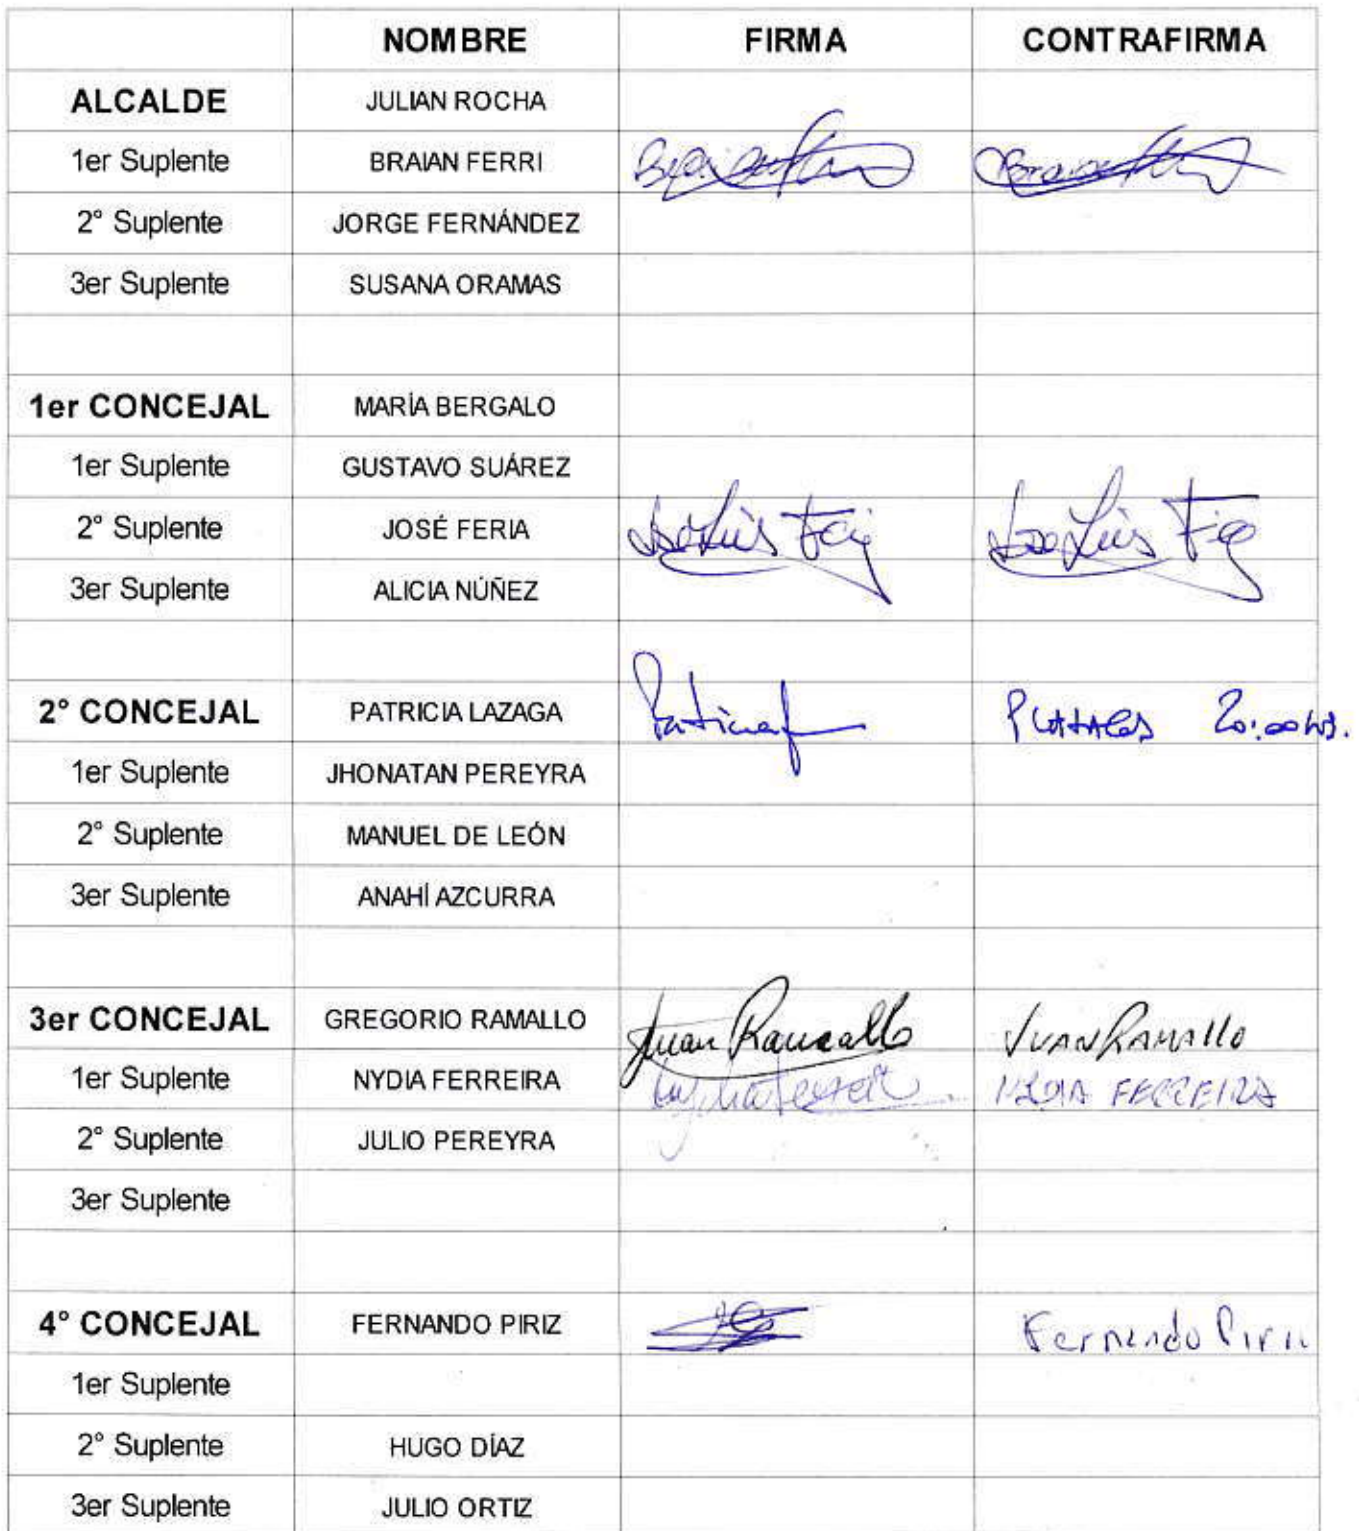 NOMBRE FIRMA CONTRAFIRMA
ALCALDE JULIAN ROCHA
1er Suplente BRAIAN FERRI
2° Suplente JORGE FERNÁNDEZ
3er Suplente SUSANA ORAMAS
1er CONCEJAL MARÍA BERGALO
1er Suplente GUSTAVO SUÁREZ
2° Suplente JOSÉ FERIA
3er Suplente ALICIA NÚÑEZ
2° CONCEJAL PATRICIA LAZAGA 20:00 hs.
1er Suplente JHONATAN PEREYRA
2° Suplente MANUEL DE LEÓN
3er Suplente ANAHÍ AZCURRA
3er CONCEJAL GREGORIO RAMALLO Juan Ramallo JUAN RAMALLO
1er Suplente NYDIA FERREIRA FERREIRA
2° Suplente JULIO PEREYRA
3er Suplente
4° CONCEJAL FERNANDO PIRIZ Fernando Piriz
1er Suplente
2° Suplente HUGO DÍAZ
3er Suplente JULIO ORTIZ